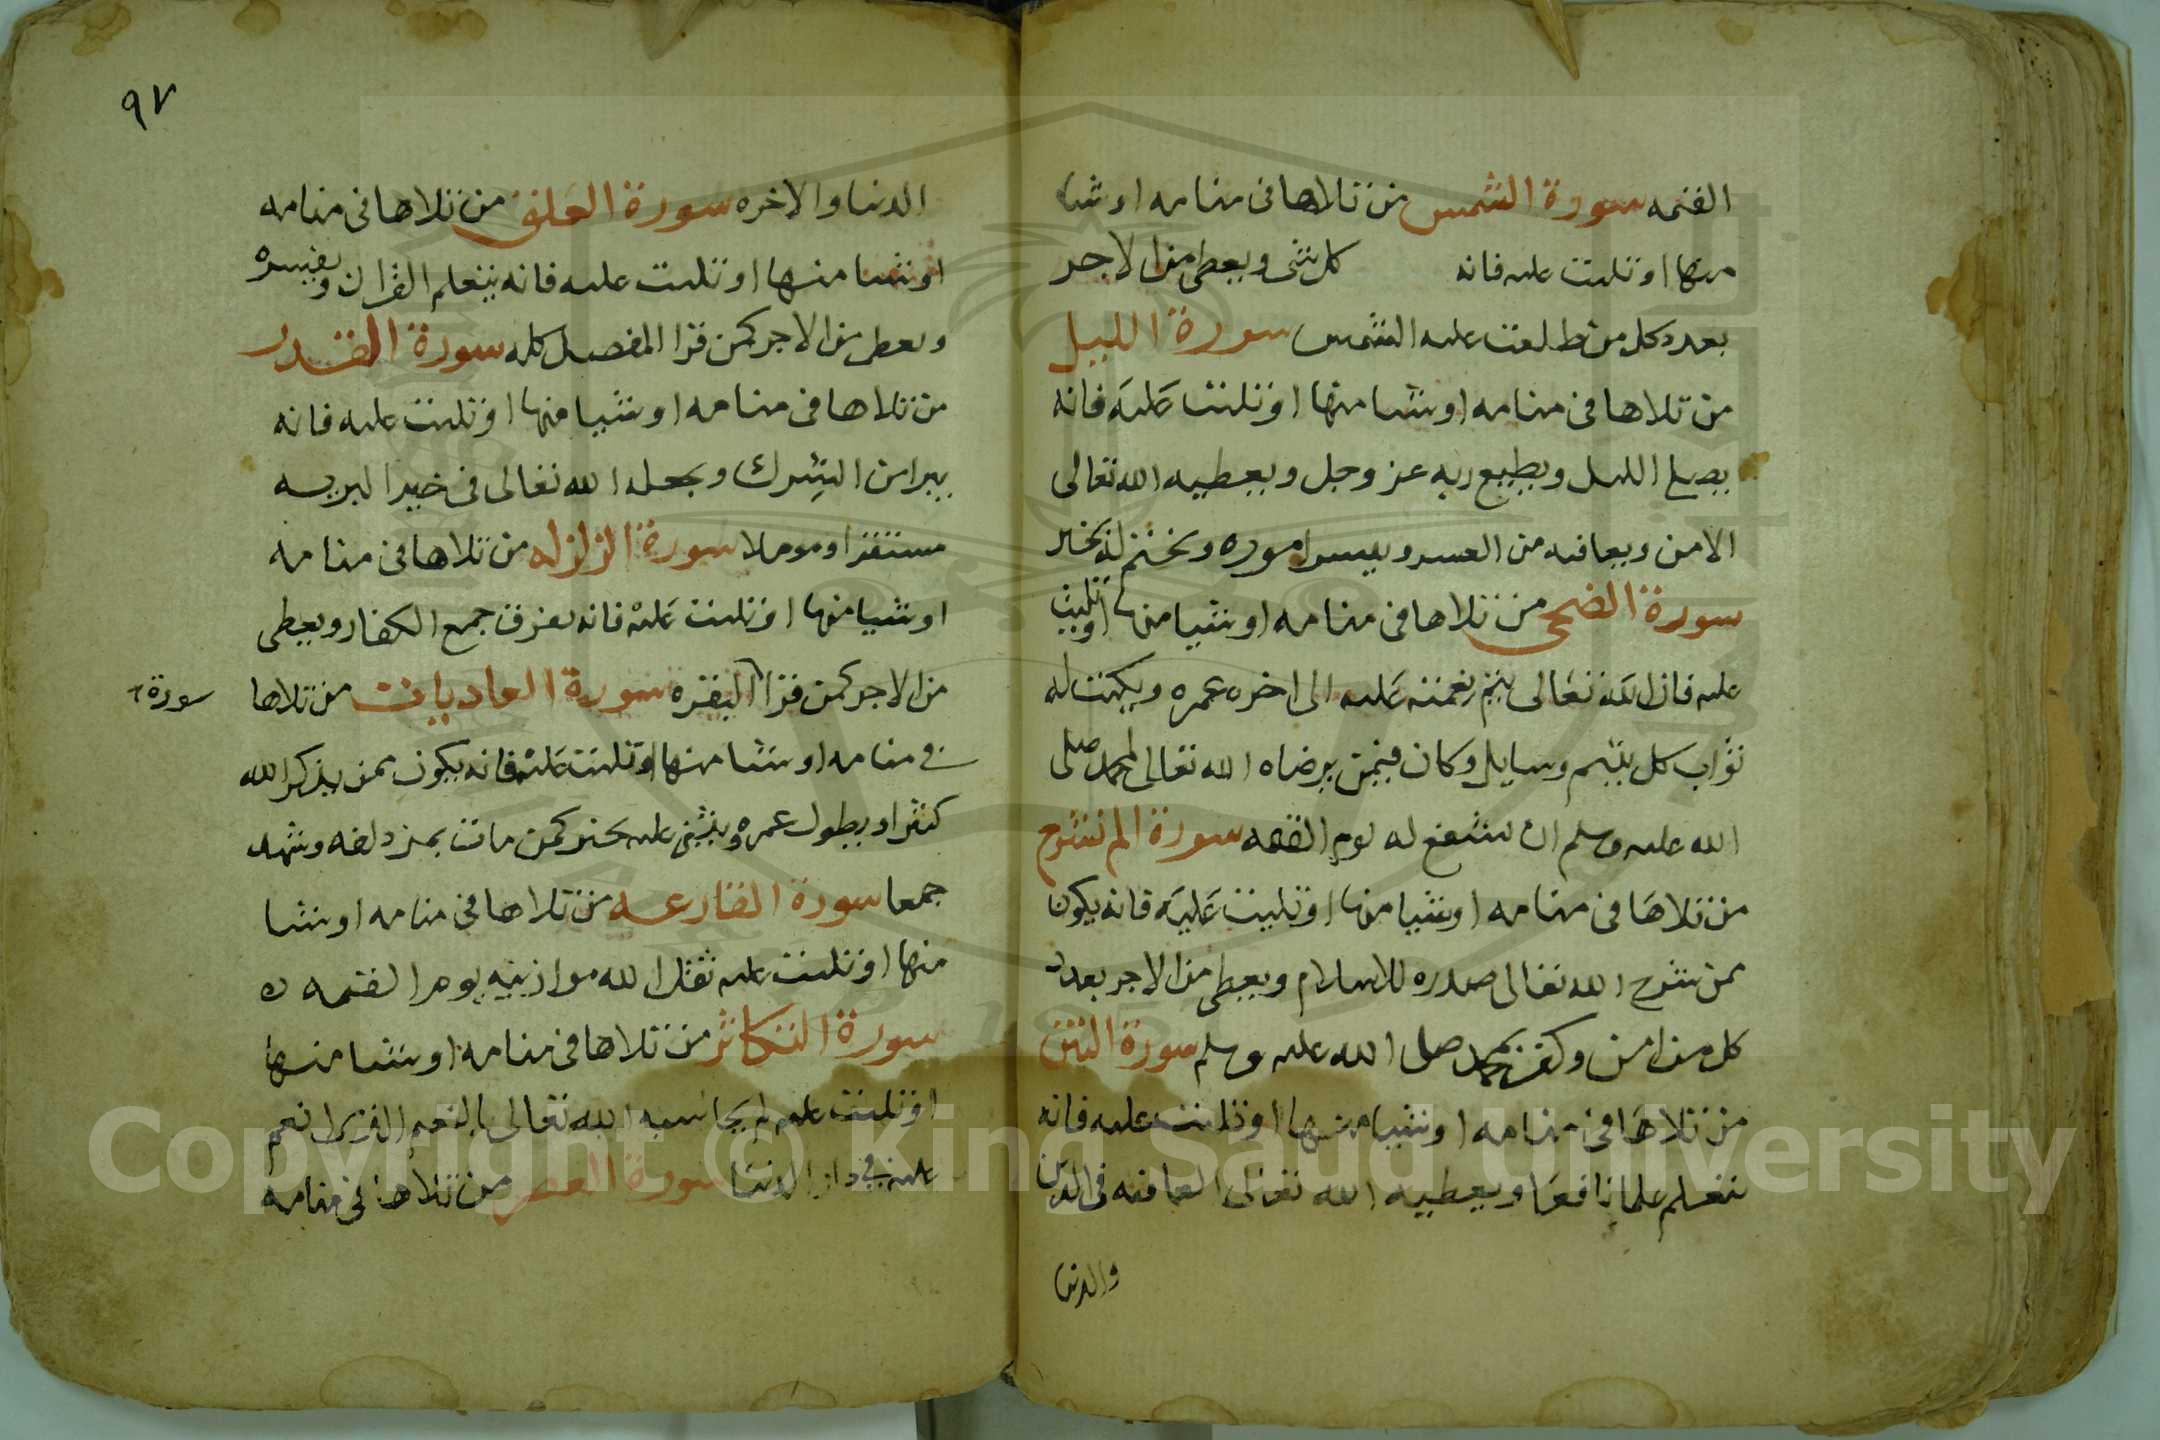 القيمه سورة الشمس من تلاها في منامه او شيا
منها او تليت عليه فانه كل شي ويعطى من الاجر
بعدد كل من طلعت عليه الشمس سورة الليل
من تلاها في منامه او شيا منها او تليت عليه فانه
يصلى الليل ويطيع ربه عز وجل ويعطيه الله تعالى
الامن ويعافيه من العسر وييسر اموره ويختم له بخير
سورة الضحى من تلاها في منامه او شيا منها او تليت
عليه فان الله تعالى يتم نعمته عليه الى اخره عمره ويكتب له
ثواب كل يتيم وسايل وكان فيمن يرضاه الله تعالى لمحمد صلى
الله عليه وسلم ان يشفع له يوم القيمه سورة الم نشرح
من تلاها في منامه او شيا منها او تليت عليه فانه يكون
ممن شرح الله تعالى صدره للاسلام ويعطى من الاجر بعدد
كل من امن وكفر بمحمد صلى الله عليه وسلم سورة التين
من تلاها في منامه او شيا منها او تليت عليه فانه
يتعلم علما نافعا ويعطيه الله تعالى العافيه في الدين
والدنيا
٩٧
الدنيا والاخره سورة العلق من تلاها في منامه
او شيا منها او تليت عليه فانه يتعلم القران وتفسيره
ويعطى من الاجر كمن قرا المفصل كله سورة القدر
من تلاها في منامه او شيا منها او تليت عليه فانه
يبرا من الشرك ويجعله الله تعالى في خير البريه
سورة الزلزله من تلاها في منامه
او شيا منها او تليت عليه فانه يفرق جمع الكفار ويعطى
من الاجر كمن قرا البقره سورة العاديات من تلاها
سورة
في منامه او شيا منها او تليت عليه فانه يكون ممن يذكر الله
كثيرا ويطول عمره ويثنى عليه بخير كمن مات بمزدلفه وشهد
جمعا سورة القارعه من تلاها في منامه او شيا
منها او تليت عليه ثقل الله موازينه يوم القيمه
سورة التكاثر من تلاها في منامه او شيا منها
او تليت عليه لم يحاسبه الله تعالى بالنعيم الذي انعم
عليه في دار الدنيا سورة العصر من تلاها في منامه
Copyright © King Saud University